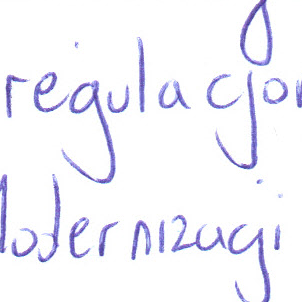 regulacjon
Modernizacji